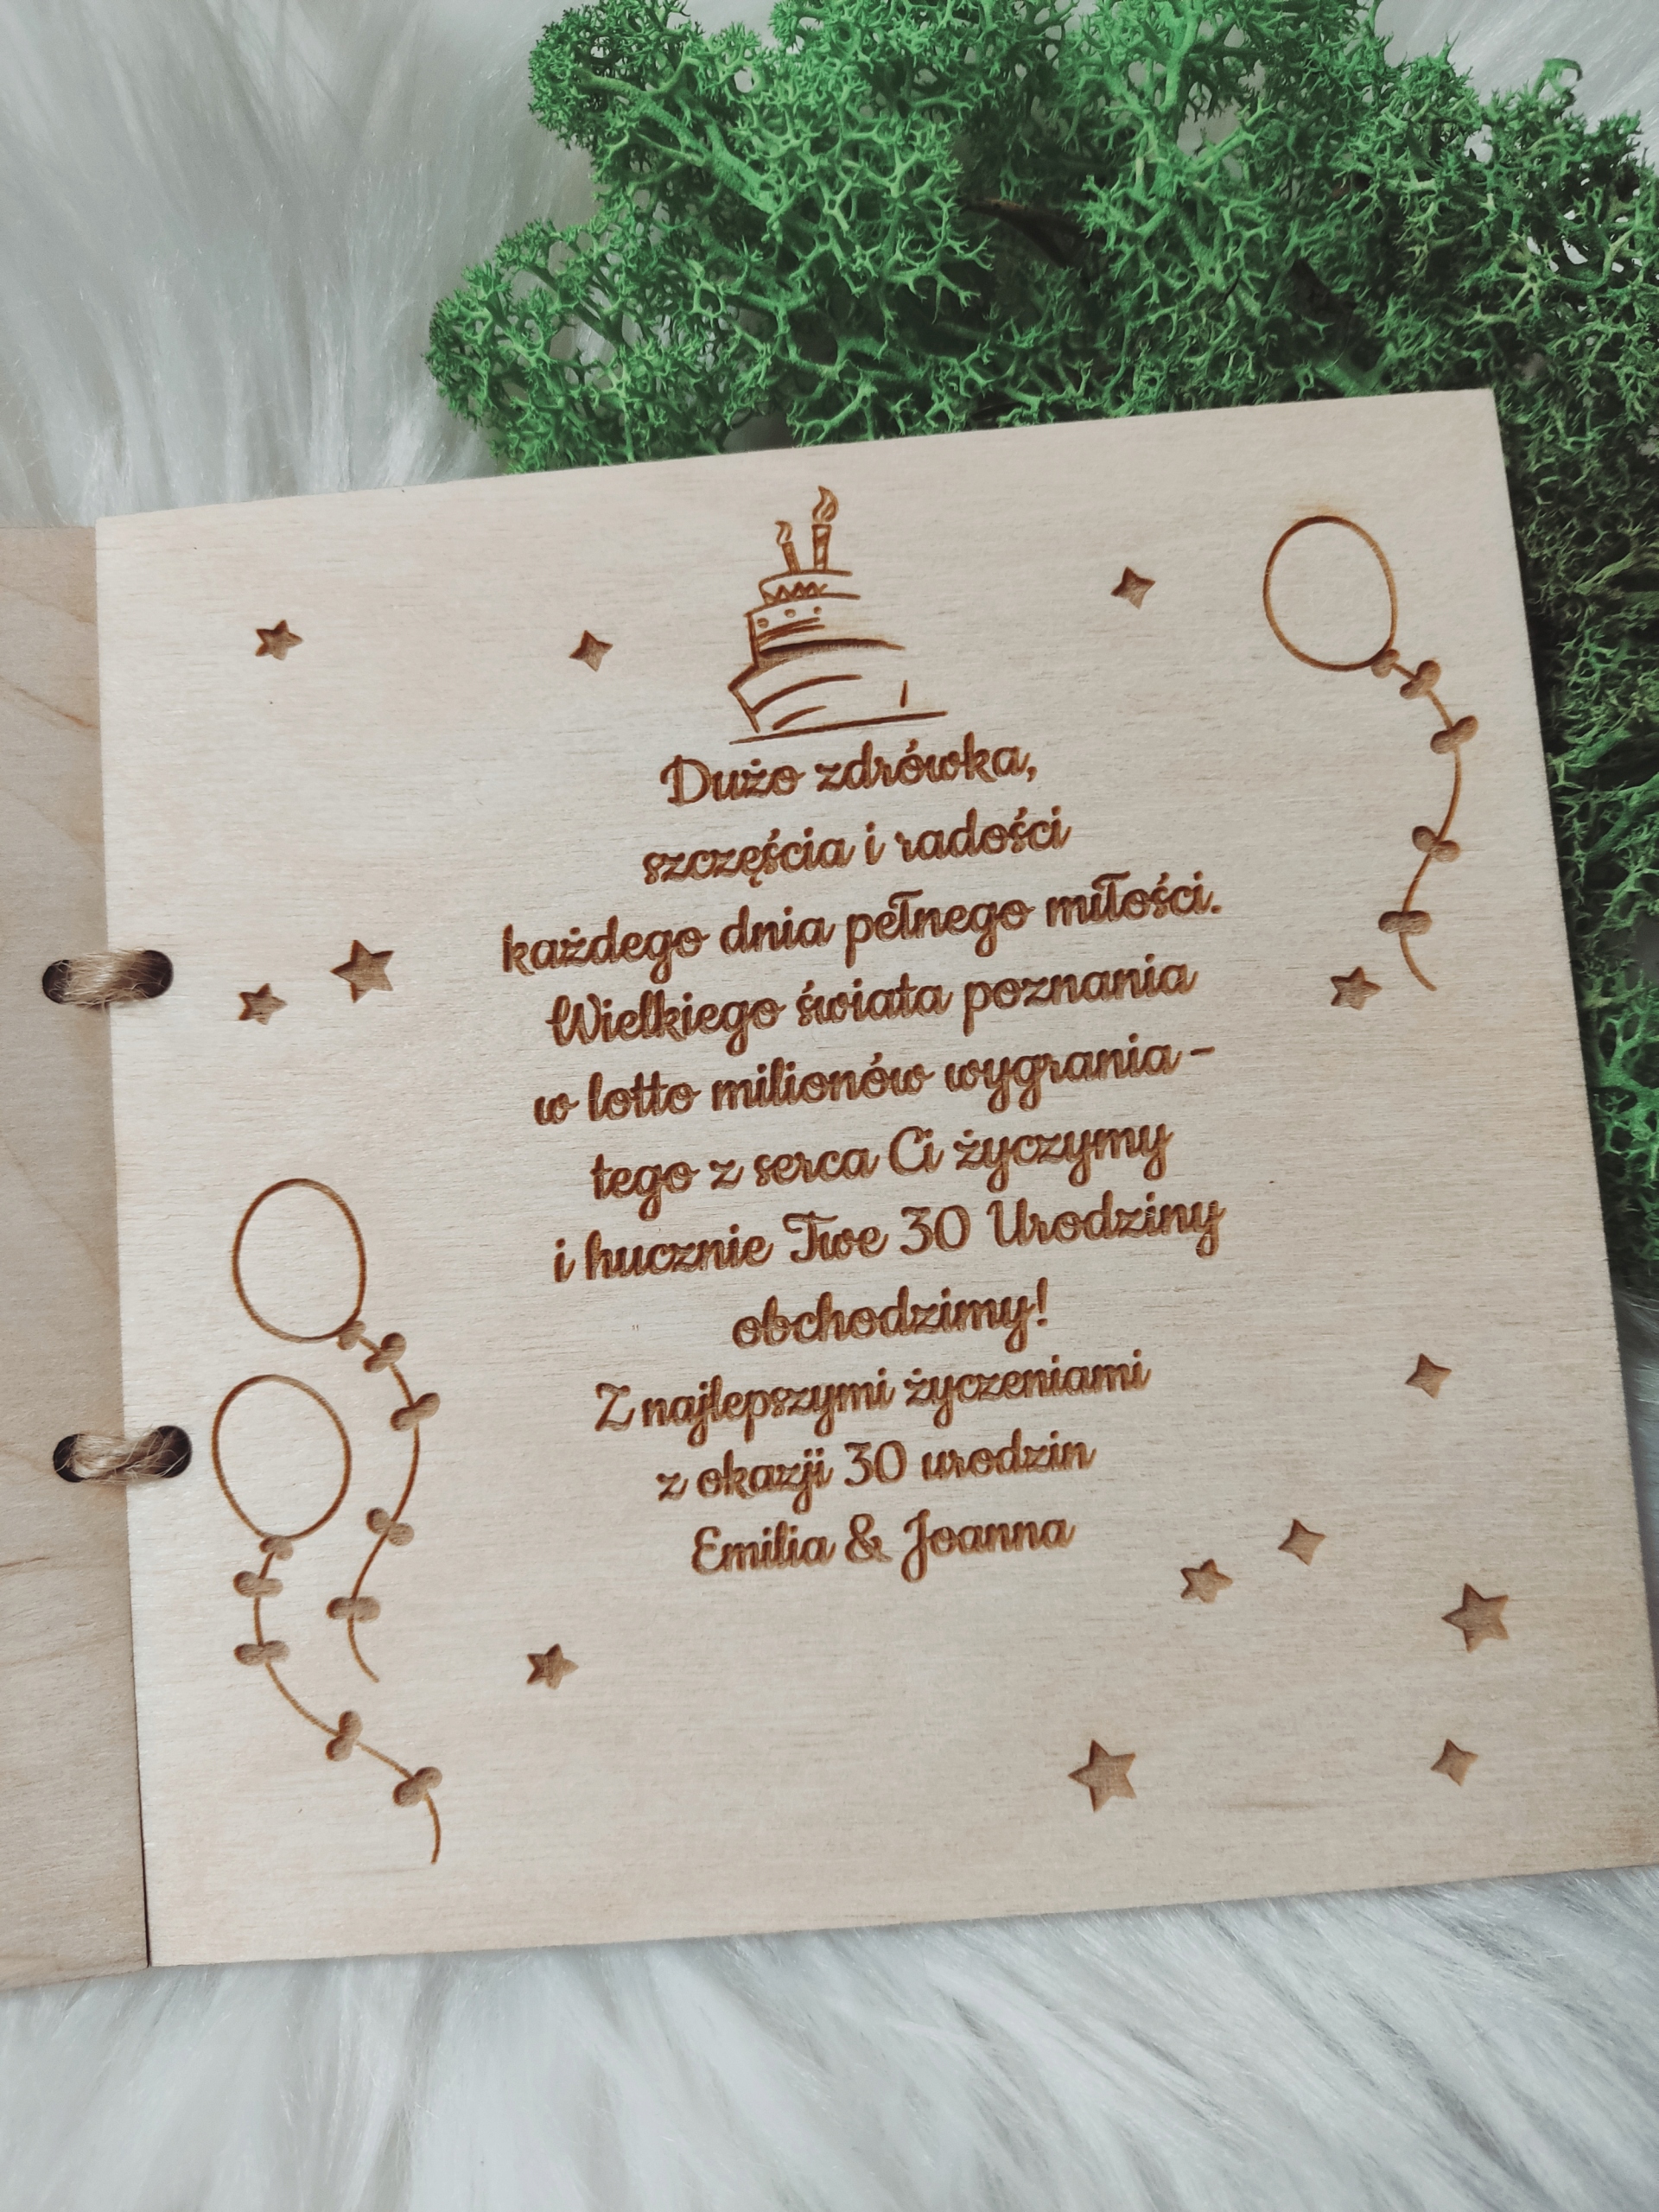 Dużo zdrówka,
szczęścia i radości
każdego dnia pełnego miłości.
Wielkiego świata poznania
w lotto milionów wygrania -
tego z serca Ci życzymy
i hucznie Twe 30 Urodziny
obchodzimy!
Z najlepszymi życzeniami
z okazji 30 urodzin
Emilia & Joanna